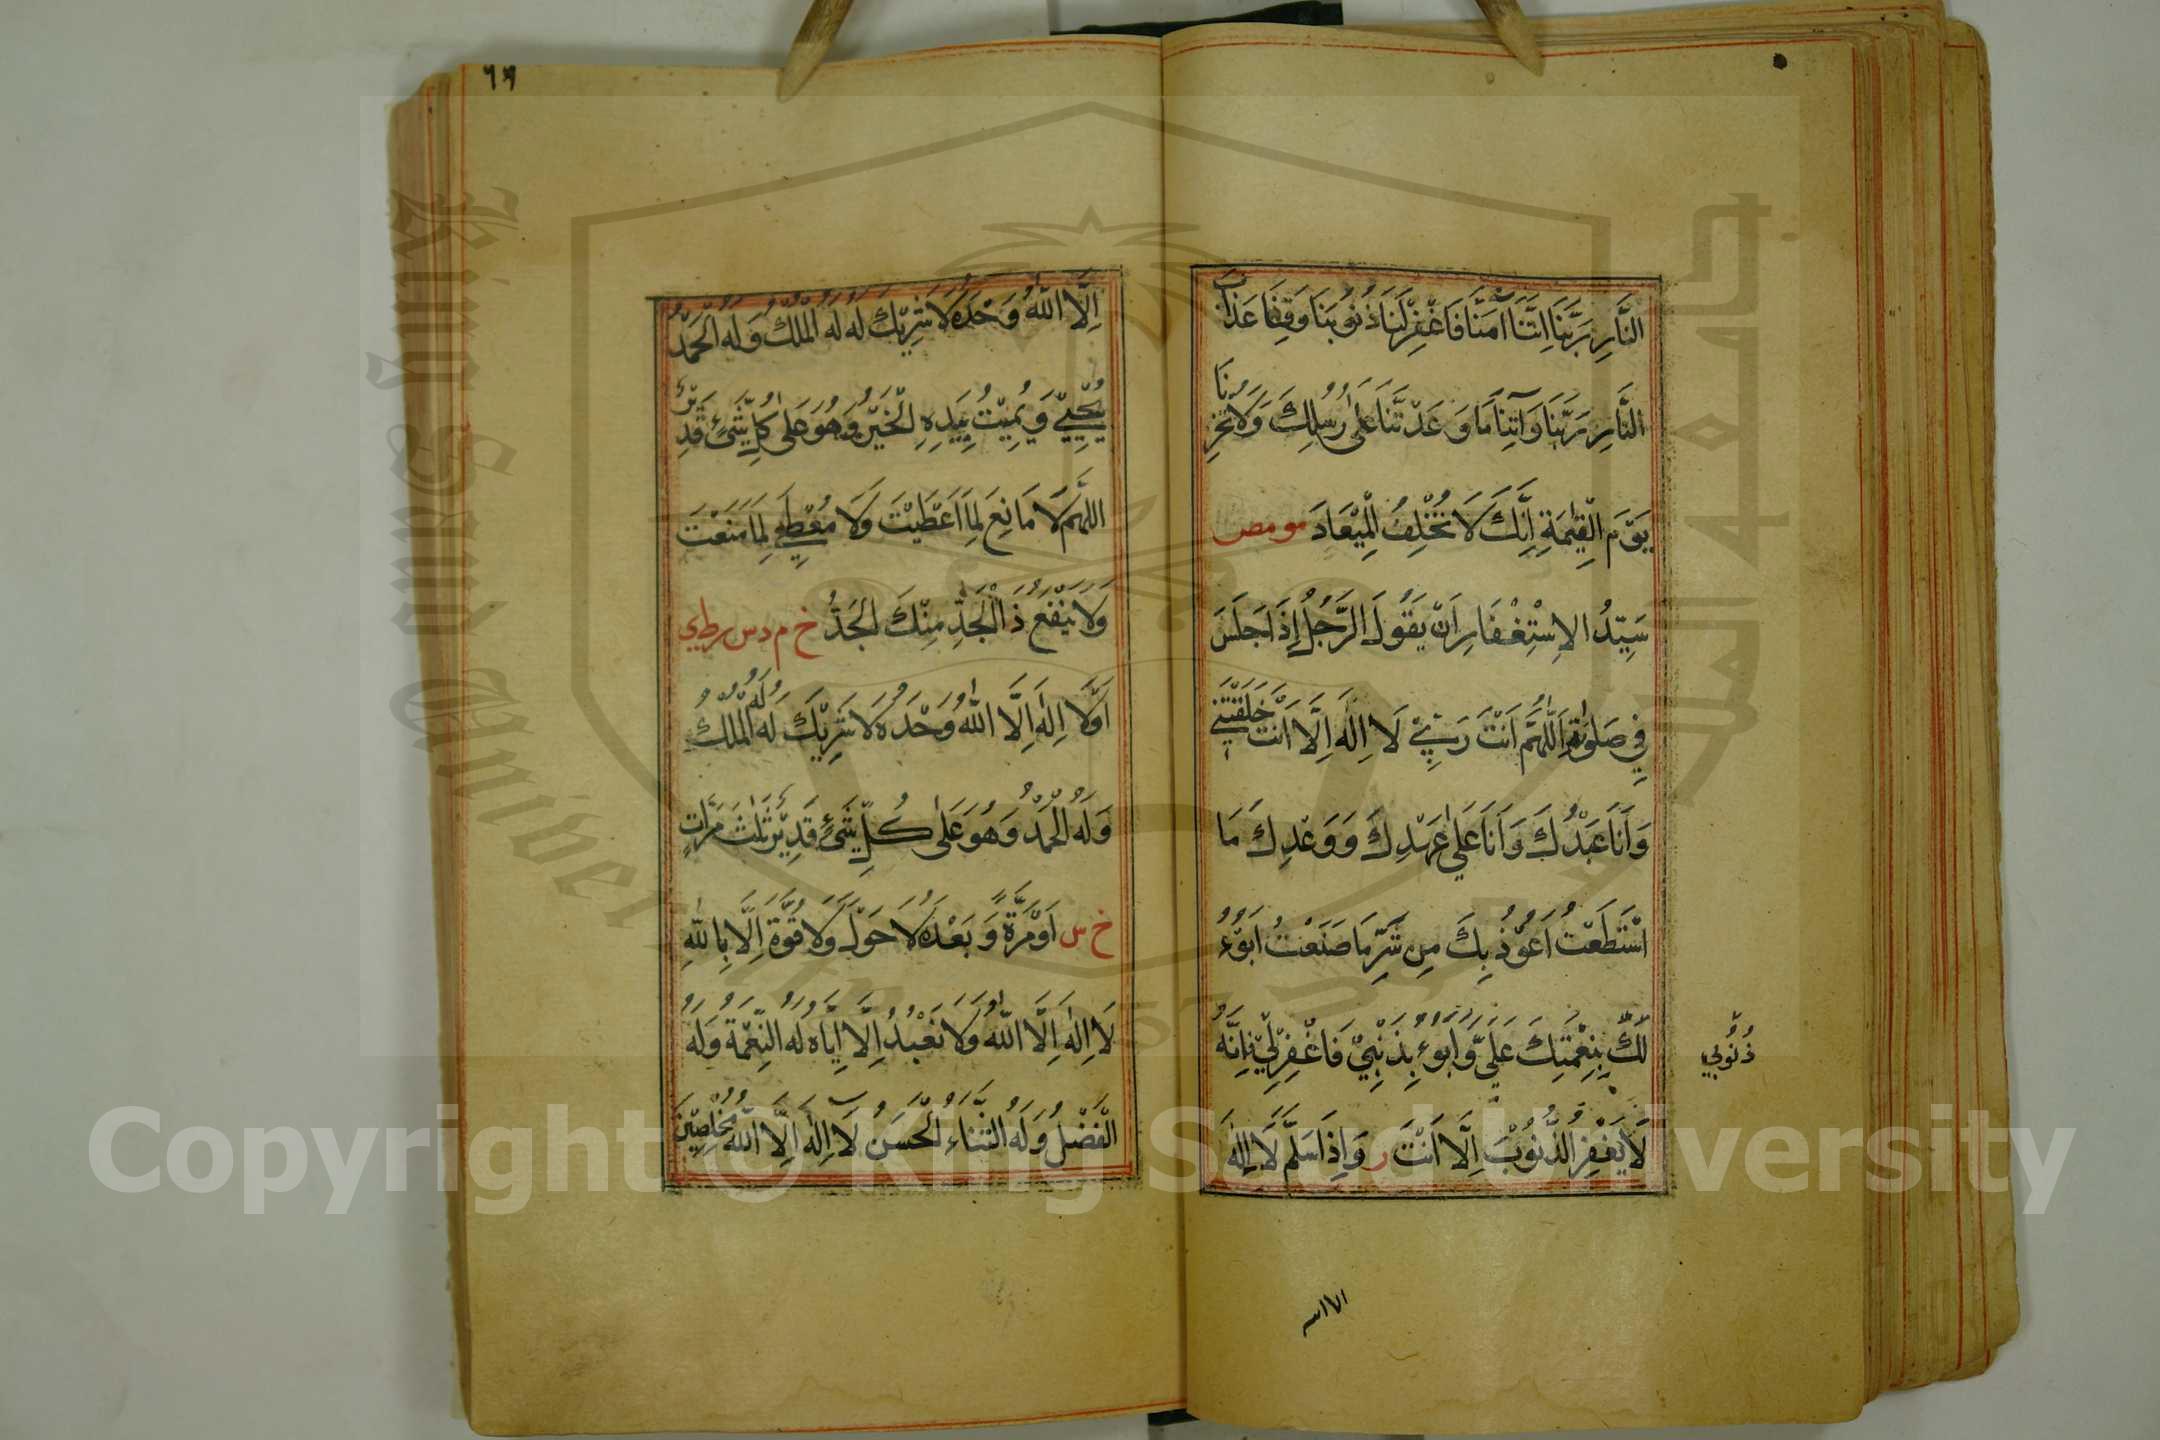 النَّارِ رَبَّنَا اِنَّنَا اٰمَنَّا فَاغْفِرْلَنَا ذُنُوْبَنَا وَقِنَا عَذَابَ
النَّارِ رَبَّنَا وَآتِنَا مَا وَعَدْتَّنَا عَلٰى رُسُلِكَ وَلَا تُخْزِنَا
يَوْمَ الْقِيٰمَةِ اِنَّكَ لَا تُخْلِفُ الْمِيْعَادَ مو مص
سَيِّدُ الاِسْتِغْفَارِ اَنْ يَقُوْلَ الرَّجُلُ إِذَا جَلَسَ
فِي صَلٰوتِهِ اَللّٰهُمَّ اَنْتَ رَبِّيْ لَا اِلٰهَ اِلَّا اَنْتَ خَلَقْتَنِيْ
وَاَنَا عَبْدُكَ وَاَنَا عَلٰى عَهْدِكَ وَوَعْدِكَ مَا
اسْتَطَعْتُ اَعُوْذُ بِكَ مِنْ شَرِّ مَا صَنَعْتُ اَبُوْءُ
لَكَ بِنِعْمَتِكَ عَلَيَّ وَاَبُوْءُ بِذَنْبِيْ فَاغْفِرْلِيْ فَاِنَّهُ
ذُنُوْبِي
لَا يَغْفِرُ الذُّنُوْبَ اِلَّا اَنْتَ ر وَاِذَا سَلَّمَ لَا اِلٰهَ
٦٦
اِلَّا اللّٰهُ وَحْدَهُ لَا شَرِيْكَ لَهُ لَهُ الْمُلْكُ وَلَهُ الْحَمْدُ
يُحْيِيْ وَيُمِيْتُ بِيَدِهِ الْخَيْرُ وَهُوَ عَلٰى كُلِّ شَيْءٍ قَدِيْرٌ
اللّٰهُمَّ لَا مَانِعَ لِمَا اَعْطَيْتَ وَلَا مُعْطِيَ لِمَا مَنَعْتَ
وَلَا يَنْفَعُ ذَا الْجَدِّ مِنْكَ الْجَدُّ خ م د س ر ط ي
اَوْ لَا اِلٰهَ اِلَّا اللّٰهُ وَحْدَهُ لَا شَرِيْكَ لَهُ لَهُ الْمُلْكُ
وَلَهُ الْحَمْدُ وَهُوَ عَلٰى كُلِّ شَيْءٍ قَدِيْرٌ ثَلٰثَ مَرَّاتٍ
خ س اَوْ مَرَّةً وَبَعْدَهُ لَا حَوْلَ وَلَا قُوَّةَ اِلَّا بِاللّٰهِ
لَا اِلٰهَ اِلَّا اللّٰهُ وَلَا نَعْبُدُ اِلَّا اِيَّاهُ لَهُ النِّعْمَةُ وَلَهُ
الْفَضْلُ وَلَهُ الثَّنَاءُ الْحَسَنُ لَا اِلٰهَ اِلَّا اللّٰهُ مُخْلِصِيْنَ
Copyright © King Saud University